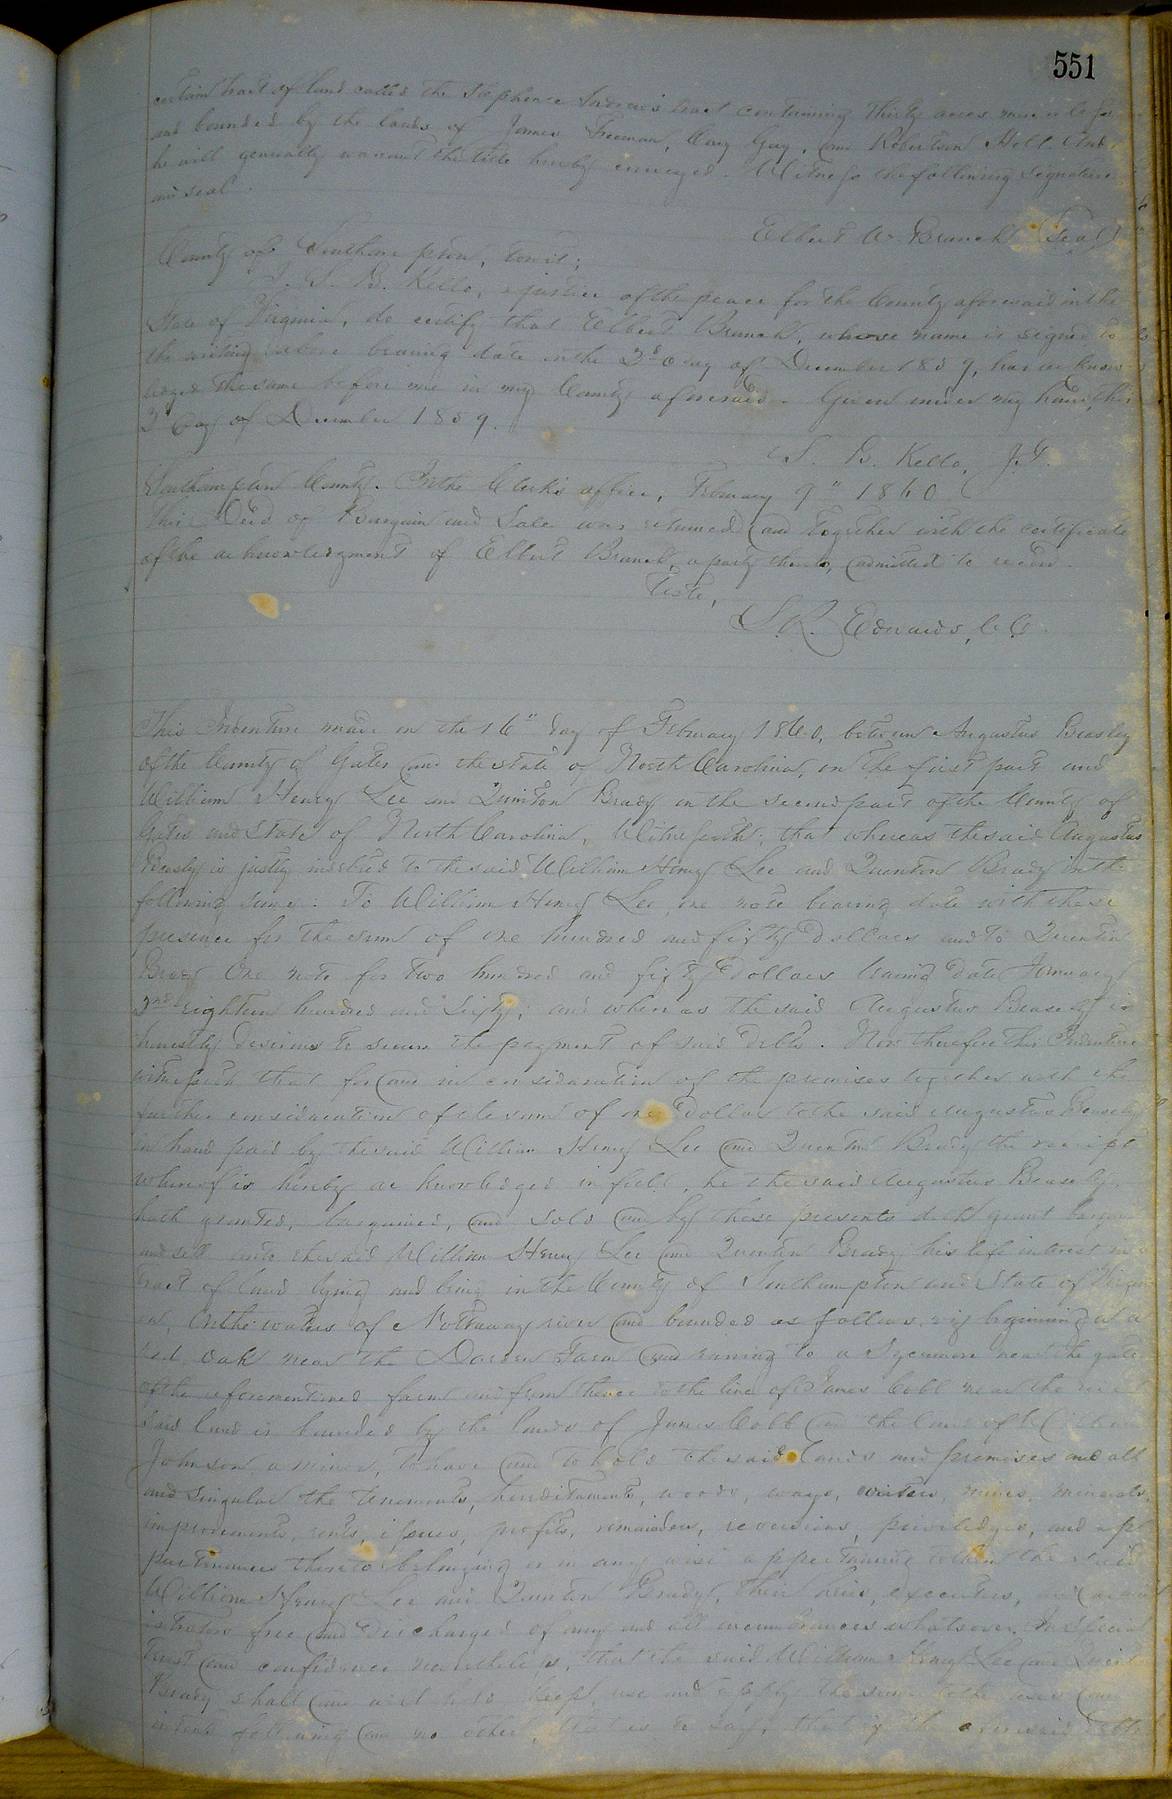 551
certain tract of land called the Stephenson tract containing thirty acres more or less
and bounded by the lands of James Freeman, Guy, and Robertson Holt. And
he will generally warrant the title hereby conveyed. Witness the following signature
and seal.
Elbert W. Branch (Seal)
County of Southampton, towit;
I. S. B. Kello, a justice of the peace for the County aforesaid in the
State of Virginia, do certify that Elbert Branch, whose name is signed to
the writing above bearing date on the 3d day of December 1859, has acknow
ledged the same before me in my County aforesaid. Given under my hand this
3d day of December 1859.
S. B. Kello, J.P.
Southampton County. In the Clerk's office, February 9" 1860
This Deed of Bargain and Sale was returned and together with the certificate
of the acknowledgment of Elbert Branch, a party thereto, admitted to record.
Teste,
L. R. Edwards, C. C.
This Indenture made on the 16" day of February 1860, between Augustus Beasley
of the County of Gates and the state of North Carolina, on the first part and
William Henry Lee and Quinton Brady on the second part of the County of
Gates and State of North Carolina, Witnesseth; that whereas the said Augustus
Beasly is justly indebted to the said William Henry Lee and Quenton Brady in the
following sums. To William Henry Lee, one note bearing date with these
presence for the sum of one hundred and fifty Dollars and to Quentin
Brady One note for two hundred and fifty Dollars bearing date January
2nd eighteen hundred and sixty; and where as the said Augustus Beasely is
honestly desirous to secure the payment of said debts. Now therefore this Indenture
witnesseth that for and in consideration of the premises together with the
further consideration of the sum of one Dollar to the said Augustus Beasely
in hand paid by the said William Henry Lee and Quentin Brady the receipt
whereof is hereby acknowledged in full, he the said Augustus Beasely,
hath granted, bargained, and sold and by these presents doth grant bargain
and sell unto the said William Henry Lee and Quentin Brady his life interest in a
tract of land lying and being in the County of Southampton and State of Virgin
ia, On the waters of Nottoway river and bounded as follows, viz beginning at a
red oak near the Darden Farm and running to a Sycamore near the gate
of the aforementioned farm and from thence to the line of James Cobb near the
Said land is bounded by the lands of James Cobb and the land of
Johnson a minor, to have and to hold the said lands and premises and all
and singular the tenements, hereditaments, woods, ways, waters, mines, minerals,
improvements, rents, issues, profits, remainders, reversions, priviledges, and ap
purtenances thereto belonging or in any wise appertaining to them the said
William Henry Lee and Quentin Brady, their heirs, executors, and admin
istrators free and discharged of any and all incumbrances whatsover. In special
trust and confidence nevertheless, that the said William Henry Lee and Quentin
Brady shall and will hold, keep, use and apply the same to the uses and
intents following and no other, that is to say, that if the aforesaid debts